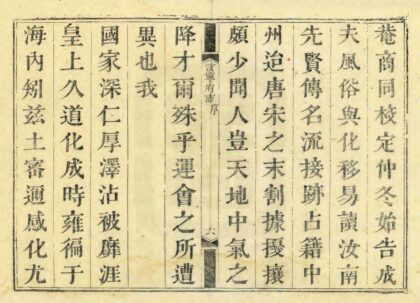 菴商同校定仲冬始告成
夫風俗與化移易讀汝南
先賢傳名流接跡占籍中
州迨唐宋之末割據擾攘
頗少聞人豈天地中氣之
汝寧府志序
六
降才爾殊乎運會之所遭
異也我
國家深仁厚澤沾被靡涯
皇上久道化成時雍徧于
海内矧兹土審邇感化尤